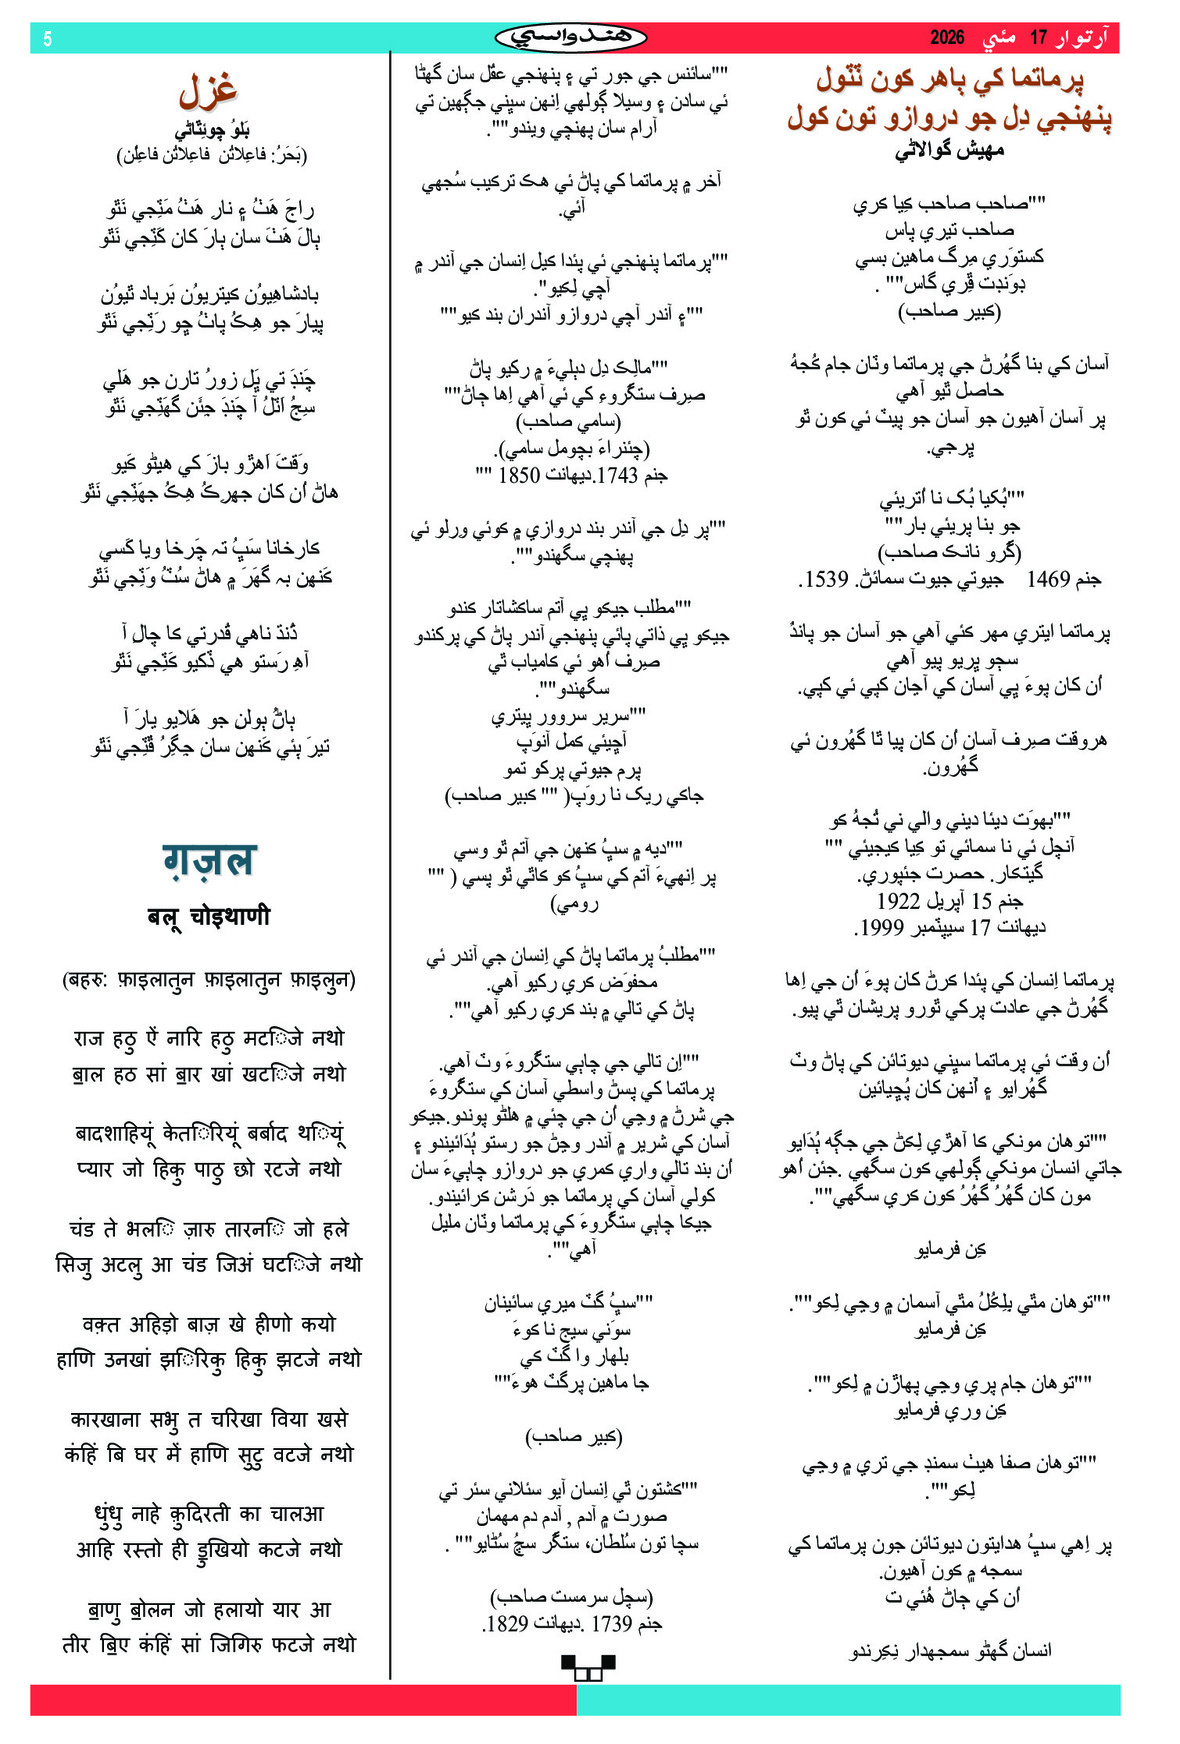 آرتوار 17 مئي 2026
هندواسي
5
پرماتما کي ٻاهر کون ٽٽول
پنهنجي دِل جو دروازو تون کول
مهيش گوالاڻي
""صاحب صاحب کِيا کري
صاحب تيري پاس
کستوَري مِرگ ماهين بسي
ڍوَنڍت ڦِري گاس"" .
(کبير صاحب)
آسان کي بنا گهُرڻ جي پرماتما وٽان جام کُجهُ
حاصل ٿيو آهي
پر آسان آهيون جو آسان جو پيٽ ئي کون ٿو
ڀرجي.
""ڀُکيا ڀُک نا اُتريئي
جو بنا پريئي بار""
(گُرو نانک صاحب)
جنم 1469 جيوتي جيوت سمائڻ. 1539.
پرماتما ايتري مهر کئي آهي جو آسان جو پاندُ
سڄو ڀريو پيو آهي
اُن کان پوءَ ڀي آسان کي آڃان کپي ئي کپي.
هروقت صِرف آسان اُن کان پيا ٿا گهُرون ئي
گهُرون.
""بهوَت ديئا ديني والي ني تُجهُ کو
آنچل ئي نا سمائي تو کِيا کيجيئي ""
گيتکار. حصرت جئپوري.
جنم 15 آپريل 1922
ديهانت 17 سيپٽمبر 1999.
پرماتما اِنسان کي پئدا کرڻ کان پوءَ اُن جي اِها
گهُرڻ جي عادت پرکي ٿورو پريشان ٿي پيو.
اُن وقت ئي پرماتما سڀني ديوتائن کي پاڻ وٽ
گهُرايو ۽ اُنهن کان پُڇيائين
""توهان مونکي کا آهڙي لِکڻ جي جڳهه ٻُڌايو
جاتي انسان مونکي ڳولهي کون سگهي .جئن اُهو
مون کان گهُرُ گهُرُ کون کري سگهي"".
کِن فرمايو
""توهان مٿي بلِکُلُ مٿي آسمان ۾ وڃي لِکو"".
کِن فرمايو
""توهان جام پري وڃي پهاڙن ۾ لِکو"".
کِن وري فرمايو
""توهان صفا هيٺ سمنڊ جي تري ۾ وڃي
لِکو"".
پر اِهي سڀُ هدايتون ديوتائن جون پرماتما کي
سمجهه ۾ کون آهيون.
اُن کي ڄاڻ هُئي ت
انسان گهڻو سمجهدار نِکِرندو
""سائنس جي جور تي ۽ پنهنجي عقُل سان گهڻا
ئي سادن ۽ وسيلا ڳولهي اِنهن سڀني جڳهين تي
آرام سان پهنچي ويندو"".
آخر ۾ پرماتما کي پاڻ ئي هک ترکيب سُجهي
آئي.
""پرماتما پنهنجي ئي پئدا کيل اِنسان جي آندر ۾
آچي لِکيو".
""۽ آندر آچي دروازو آندران بند کيو""
""مالِک دِل دٻليءَ ۾ رکيو پاڻ
صِرف ستگروءِ کي ئي آهي اِها ڄاڻ""
(سامي صاحب)
(چئنراءَ بچومل سامي).
جنم 1743.ديهانت 1850 ""
""پر دِل جي آندر بند دروازي ۾ کوئي ورلو ئي
پهنچي سگهندو"".
""مطلب جيکو ڀي آتم ساکشاتار کندو
جيکو ڀي ذاتي پائي پنهنجي آندر پاڻ کي پرکندو
صِرف اُهو ئي کامياب ٿي
سگهندو"".
""سرير سروور ڀيتري
آڇيئي کمل آنوَپ
پرم جيوتي پرکو تمو
جاکي ريک نا روَپ( "" کبير صاحب)
""ديه ۾ سڀُ کنهن جي آتم ٿو وسي
پر اِنهيءَ آتم کي سڀُ کو کاٿي ٿو پسي ( ""
رومي)
""مطلبُ پرماتما پاڻ کي اِنسان جي آندر ئي
محفوَض کري رکيو آهي.
پاڻ کي تالي ۾ بند کري رکيو آهي"".
""اِن تالي جي چاٻي ستگروءَ وٽ آهي.
پرماتما کي پسڻ واسطي آسان کي ستگروءَ
جي شرڻ ۾ وڃي اُن جي چئي ۾ هلڻو پوندو.جيکو
آسان کي شرير ۾ آندر وڃڻ جو رستو ٻُڌائيندو ۽
اُن بند تالي واري کمري جو دروازو چاٻيءَ سان
کولي آسان کي پرماتما جو دَرشن کرائيندو.
جيکا چاٻي ستگروءَ کي پرماتما وٽان مليل
آهي"".
""سڀُ گٽ ميري سائينان
سوَني سيج نا کوءَ
بلهار وا گٽ کي
جا ماهين پرگٽ هوءَ""
(کبير صاحب)
""کشتون ٿي اِنسان آيو سئلاني سئر تي
صورت ۾ آدم , آدم دم مهمان
سچا تون سُلطان، ستگر سچُ سُڻايو"" .
(سچل سرمست صاحب)
جنم 1739 .ديهانت 1829.
غزل
بَلوُ چوئِٿاڻي
(بَحَرُ: فاعِلاتُن فاعِلاتُن فاعِلُن)
راجَ هَٺُ ۽ نارِ هَٺُ مَٽِجي نَٿو
ٻالَ هَٺَ سان ٻارَ کان کَٽِجي نَٿو
بادشاهِيوُن کيتريوُن بَرباد ٿيوُن
پيارَ جو هِکُ پاٺُ ڇو رَٽِجي نَٿو
چَنڊَ تي ڀَلِ زورُ تارن جو هَلي
سِجُ اَٽَلُ آ چَنڊَ جِئَن گهَٽِجي نَٿو
وَقتَ اَهڙو بازَ کي هيڻو کَيو
هاڻ اُن کان جهرِکُ هِکُ جهَٽِجي نَٿو
کارخانا سَڀُ تہ چَرخا ويا کَسي
کَنهن بہ گهَرَ ۾ هاڻ سُٽُ وَٽِجي نَٿو
ڌُنڌ ناهي قُدرتي کا چال آ
آهِ رَستو هي ڏُکيو کَٽِجي نَٿو
ٻاڻُ ٻولن جو هَلايو يارَ آ
تيرَ ٻئي کَنهن سان جِگِرُ ڦَٽِجي نَٿو
ग़ज़ल
बलू चोइथाणी
(बहरु: फ़ाइलातुन फ़ाइलातुन फ़ाइलुन)
राज हठु ऐं नारि हठु मटिजे नथो
ॿाल हठ सां ॿार खां खटिजे नथो
बादशाहियूं केतिरियूं बर्बाद थियूं
प्यार जो हिकु पाठु छो रटजे नथो
चंड ते भलि ज़ारु तारनि जो हले
सिजु अटलु आ चंड जिअं घटिजे नथो
वक़्त अहिड़ो बाज़ खे हीणो कयो
हाणि उनखां झिरिकु हिकु झटजे नथो
कारखाना सभु त चरिखा विया खसे
कंहिं बि घर में हाणि सुटु वटजे नथो
धुंधु नाहे क़ुदिरती का चालआ
आहि रस्तो ही ॾुखियो कटजे नथो
ॿाणु ॿोलन जो हलायो यार आ
तीर ॿिए कंहिं सां जिगिरु फटजे नथो